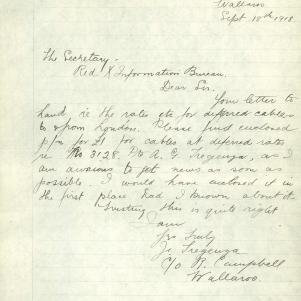 Wallaroo
Sept 18th 1918
The Secretary.
Red X Information Bureau.
Dear Sir.
Your letter to
hand, re the rates etc for deferred cables
to & from London. Please find enclosed
p/n for £1 for cables at deferred rates
re No 3128. A. G. Tregenza, as I
am anxious to get news as soon as
possible. I would have enclosed it in
the first place had I known about it
Trusting this is quite right
I am
Yrs Truly
J. Tregenza
C/o B. Campbell
Wallaroo.